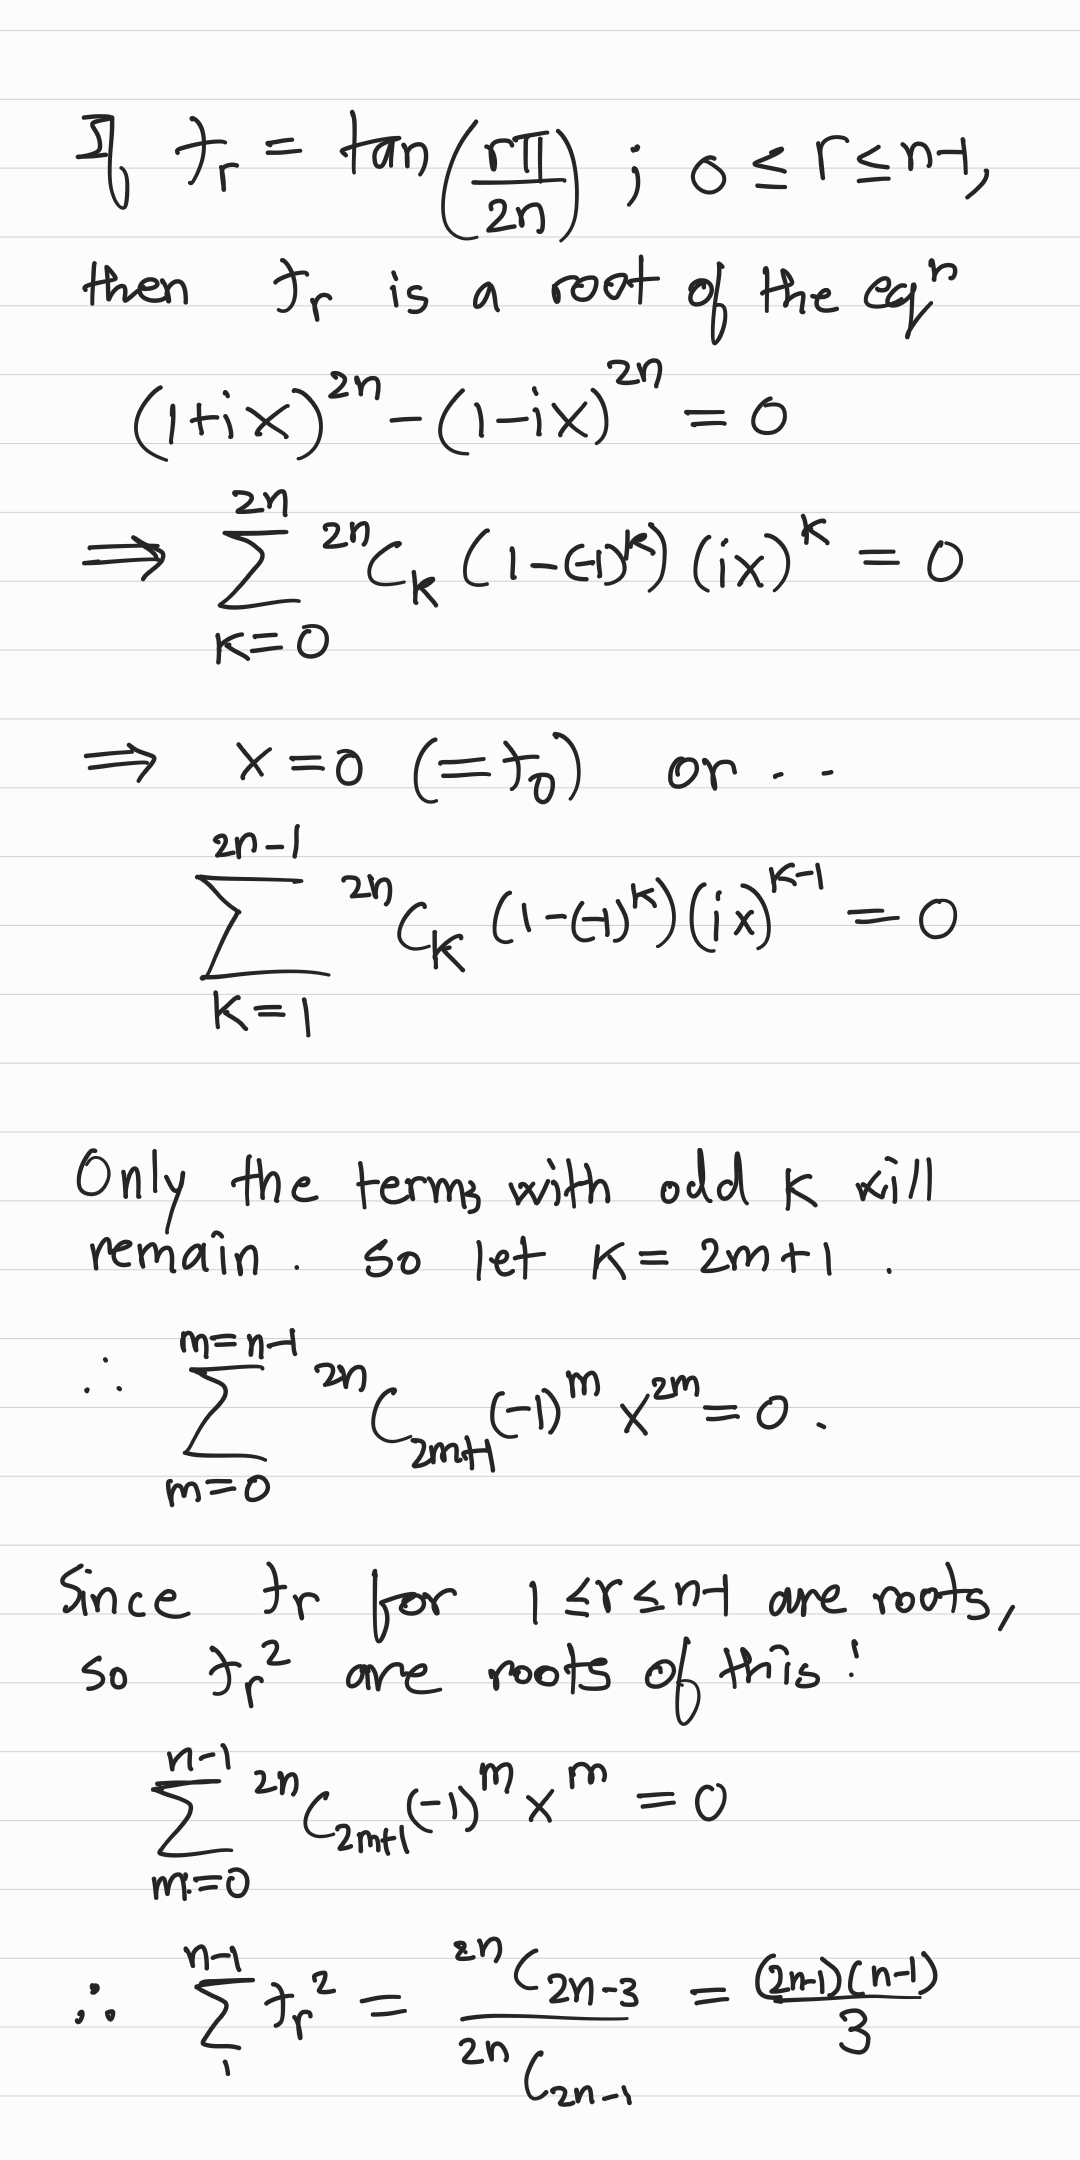 If t_r = tan(rπ/2n) ; 0 ≤ r ≤ n-1,
then t_r is a root of the eqⁿ
(1+ix)^{2n} - (1-ix)^{2n} = 0
⟹ \sum_{k=0}^{2n} {}^{2n}C_k (1-(-1)^k) (ix)^k = 0
⟹ x = 0 (= t_0) or . .
\sum_{k=1}^{2n-1} {}^{2n}C_k (1-(-1)^k)(ix)^{k-1} = 0
Only the terms with odd k will
remain. so let k = 2m+1 .
∴ \sum_{m=0}^{m=n-1} {}^{2n}C_{2m+1} (-1)^m x^{2m} = 0 .
Since t_r for 1 ≤ r ≤ n-1 are roots,
so t_r^2 are roots of this :
\sum_{m=0}^{n-1} {}^{2n}C_{2m+1} (-1)^m x^m = 0
∴ \sum_{1}^{n-1} t_r^2 = \frac{{}^{2n}C_{2n-3}}{{}^{2n}C_{2n-1}} = \frac{(2n-1)(n-1)}{3}